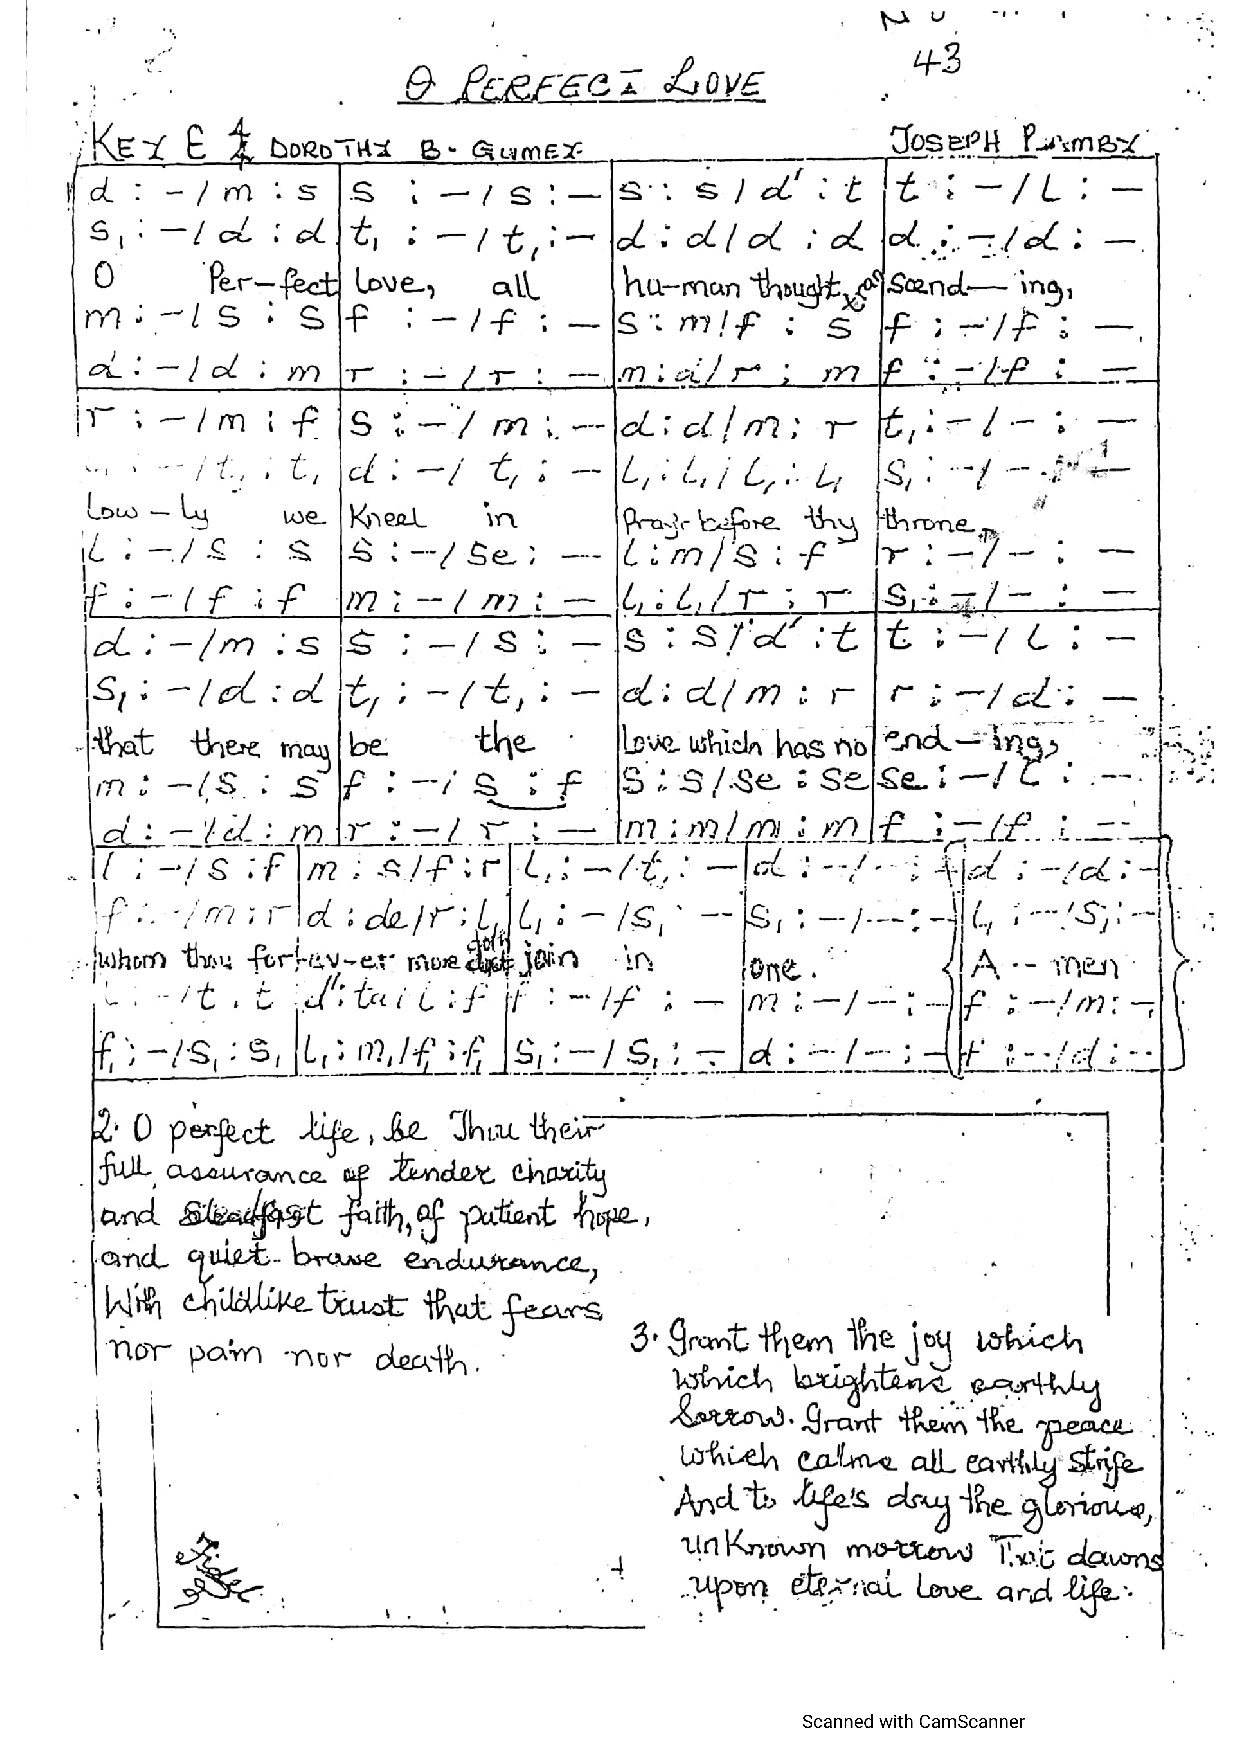 43
O PERFECT LOVE
KEY E 4/4 DOROTHY B. GUMEY JOSEPH
d : - / m : s | s : - / s : - | s : s / d' : t | t : - / L : -
s₁ : - / d : d | t₁ : - / t₁ : - | d : d / d : d | d : - / d : -
O Per-fect love, all hu-man thought scend-ing,
m : - / s : s | f : - / f : - | s : m / f : s | f : - / f : -
d : - / d : m | r : - / r : - | m : d / r : m | f : - / f : -
r : - / m : f | s : - / m : - | d : d / m : r | t₁ : - / - : -
: - / t₁ : t₁ | d : - / t₁ : - | L₁ : L₁ / L₁ : L₁ | s₁ : - / - : -
Low-ly we Kneel in Pray'r before thy throne,
L : - / s : s | s : - / se : - | L : m / s : f | r : - / - : -
f : - / f : f | m : - / m : - | L₁ : L₁ / r : r | s₁ : - / - : -
d : - / m : s | s : - / s : - | s : s / d' : t | t : - / L : -
s₁ : - / d : d | t₁ : - / t₁ : - | d : d / m : r | r : - / d : -
that there may be the Love which has no end-ing,
m : - / s : s | f : - / s : f | s : s / se : se | se : - / L : -
d : - / d : m | r : - / r : - | m : m / m : m | f : - / f : -
l : - / s : f | m : s / f : r | L₁ : - / t₁ : - | d : - / - : - | d : - / d : -
f : - / m : r | d : de / r : L₁ | L₁ : - / s₁ : - | s₁ : - / - : - | L₁ : - / s₁ : -
whom thou for-ev-er more doth join in one. A - men
: - / t : t | d' : ta / L : f | f : - / f : - | m : - / - : - | f : - / m : -
f₁ : - / s₁ : s₁ | L₁ : m₁ / f₁ : f₁ | s₁ : - / s₁ : - | d : - / - : - | f : - / d : -
2. O perfect life, be Thou their
full assurance of tender charity
and Steadfast faith, of patient hope,
and quiet- brave endurance,
With childlike trust that fears
nor pain nor death.
3. Grant them the joy which
which brightens earthly
Sorrow. Grant them the peace
which calms all earthly strife
And to life's day the glorious,
unKnown morrow That dawns
upon eternal Love and life.
Scanned with CamScanner